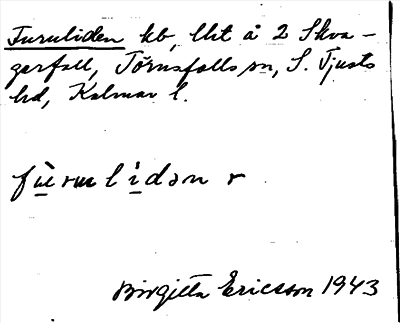 Furuliden kb, lht å 2 Skva-
gerfall, Törnsfalls sn, S. Tjusts
hd, Kalmar l.
fùrulìdən r
Birgitta Ericsson 1943